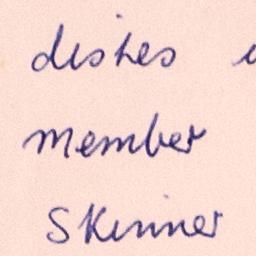 dishes
member
Skinner